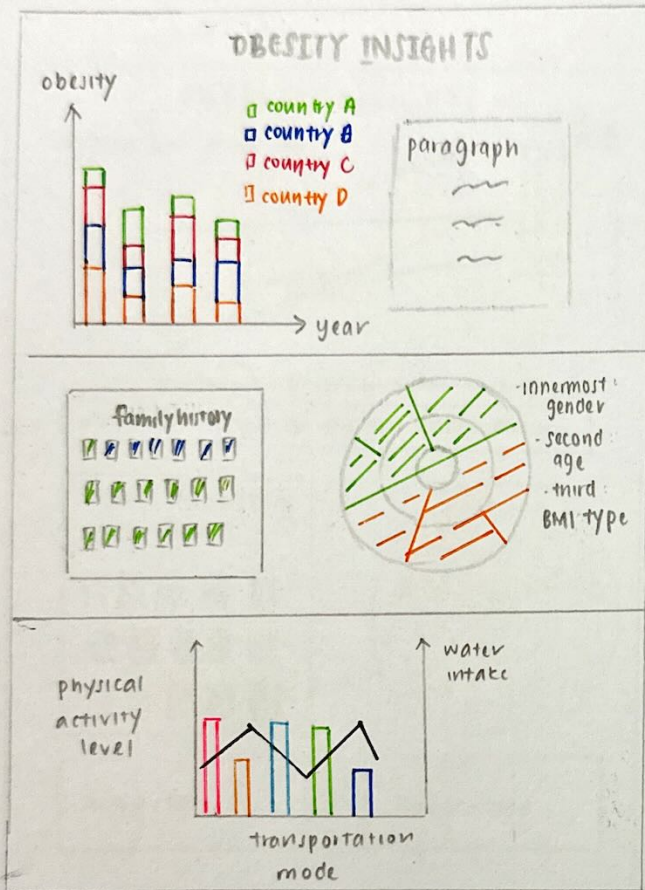 OBESITY INSIGHTS
obesity
country A
country B
country C
country D
year
paragraph
family history
- innermost :
gender
- second :
age
- third :
BMI type
physical
activity
level
water
intake
transportation
mode